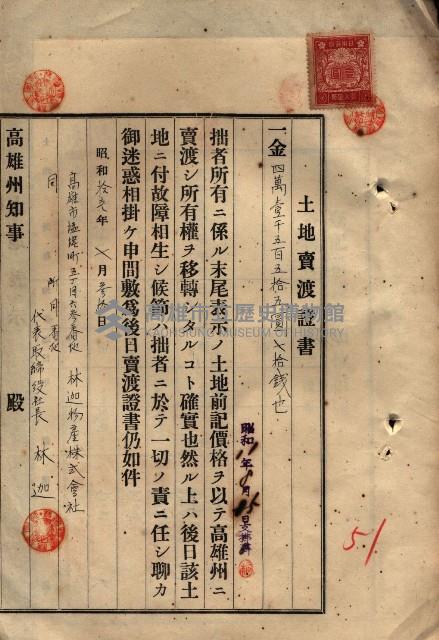 土地賣渡證書
一金四萬壹千五百五拾五圓七拾錢也
拙者所有ニ係ル末尾表示ノ土地前記價格ヲ以テ高雄州ニ
賣渡シ所有權ヲ移轉シタルコト確實也然ル上ハ後日該土
地ニ付故障相生シ候節ハ拙者ニ於テ一切ノ責ニ任シ聊カ
御迷惑相掛ケ申間敷為後日賣渡證書仍如件
昭和拾 年 月 日
高雄市 町五丁目六 番地
林迦物產株式會社
同 所同番地
代表取締役社長 林迦
高雄州知事 殿
昭和17年8月 日
51
高雄市立歷史博物館
KAOHSIUNG MUSEUM OF HISTORY